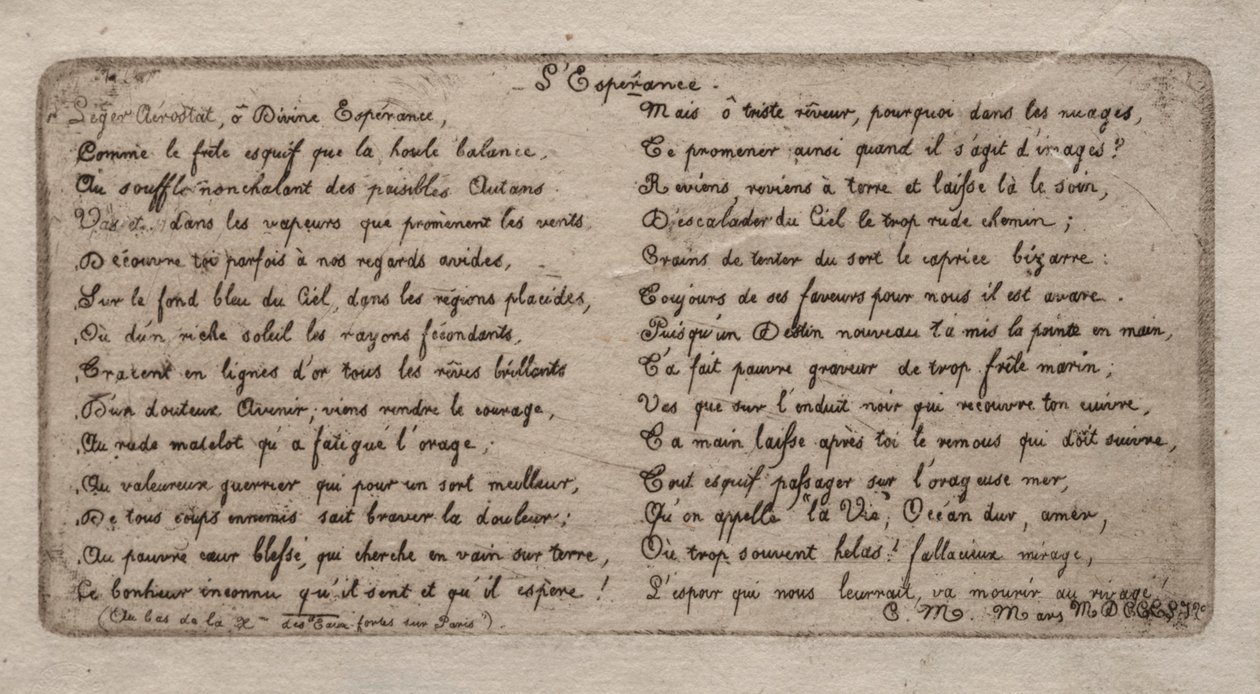 L'Espérance.
Léger Aérostat, ô Divine Espérance,
Comme le frêle esquif que la houle balance,
Au souffle nonchalant des paisibles Autans
Vas et.. dans les vapeurs que promènent les vents
Découvre toi parfois à nos regards avides,
Sur le fond bleu du Ciel, dans les régions placides,
Où d'un riche soleil les rayons fécondants,
Tracent en lignes d'or tous les rêves brillants
D'un douteux Avenir; viens rendre le courage,
Au rude matelot qu'a fatigué l'orage;
Au valeureux guerrier qui pour un sort meilleur,
De tous coups ennemis sait braver la douleur;
Au pauvre cœur blessé, qui cherche en vain sur terre,
Le bonheur inconnu qu'il sent et qu'il espère!
(Au bas de la des "Eaux fortes sur Paris").
Mais ô triste rêveur, pourquoi dans les nuages,
Te promener ainsi quand il s'agit d'images?
Reviens, reviens à terre et laisse là le soin,
D'escalader du Ciel le trop rude chemin;
Crains de tenter du sort le caprice bizarre:
Toujours de ses faveurs pour nous il est avare.
Puisqu'un Destin nouveau t'a mis la pointe en main,
T'a fait pauvre graveur de trop frêle marin;
Vas que sur l'enduit noir qui recouvre ton cuivre,
Ta main laisse après toi le remous qui doit suivre,
Tout esquif passager sur l'orageuse mer,
Qu'on appelle "la Vie", Océan dur, amer,
Où trop souvent helas! fallacieux mirage,
L'espoir qui nous leurrait, va mourir au rivage!
C. M. Mars